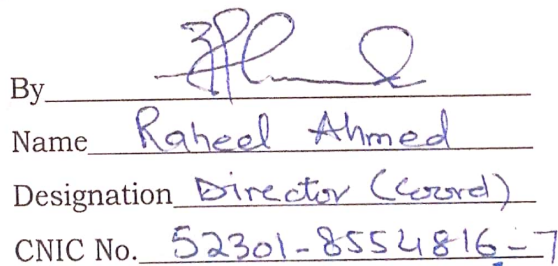 By
Name Raheel Ahmed
Designation Director (Coord)
CNIC No. 52301-8554816-7